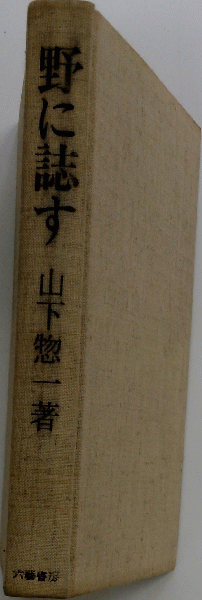 野に誌す
山下惣一著
六藝書房